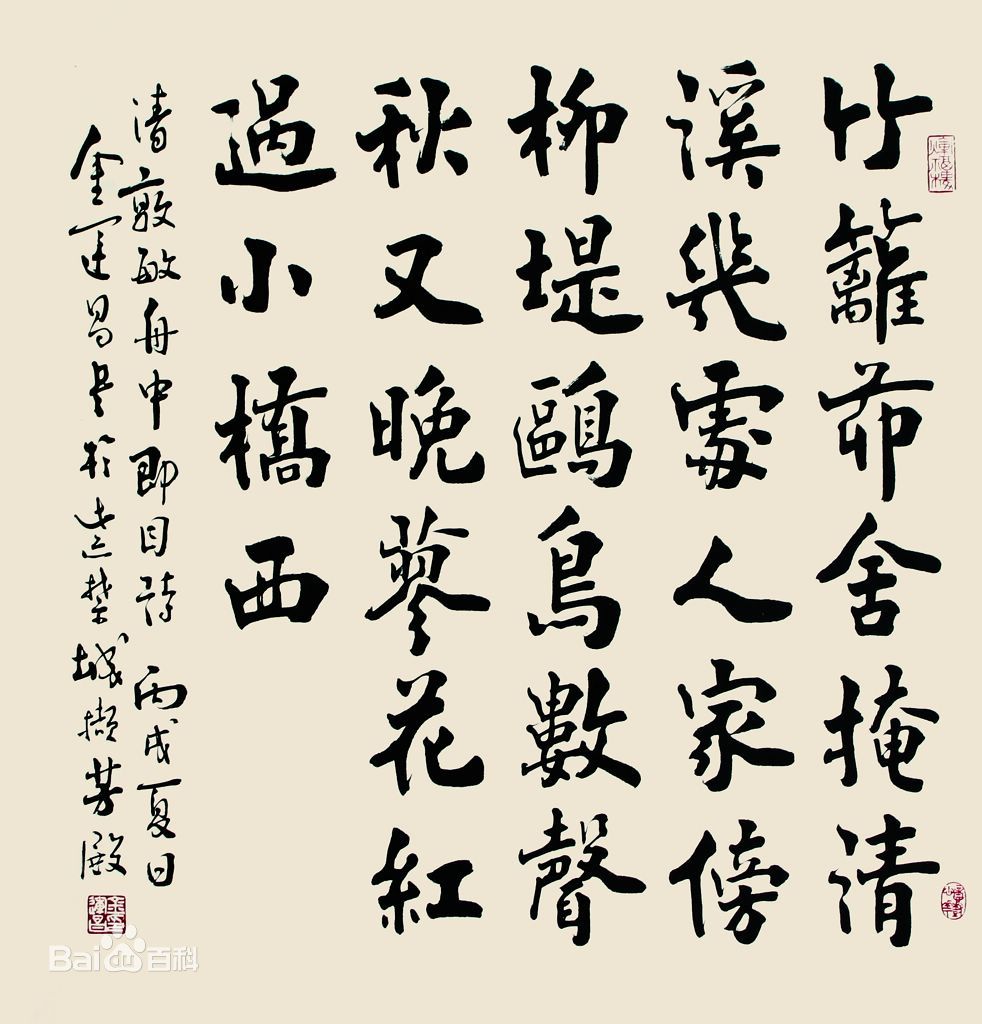 竹籬茆舍掩清
溪幾處人家傍
柳堤鷗鳥數聲
秋又晚蓼花紅
過小橋西
清敦敏舟中即目詩 丙戌夏日
金運昌書於紫禁城擷芳殿
Bai百科